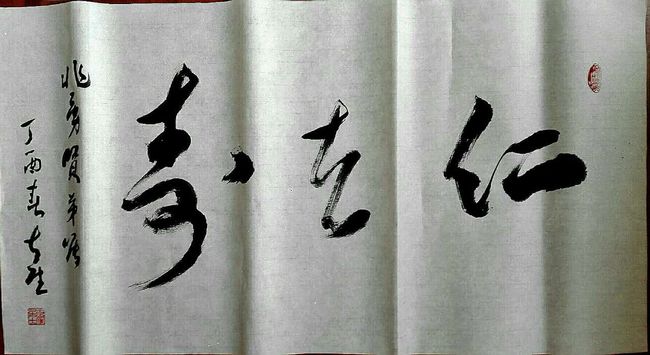 仁者寿
兆勇贤弟属
丁酉春